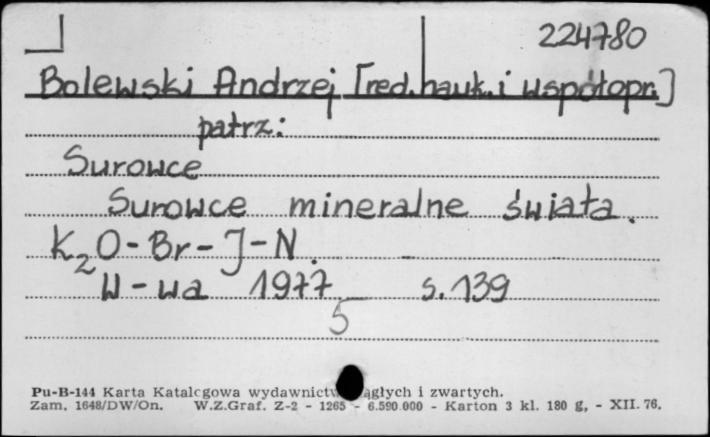 224780
Bolewski Andrzej [red. nauk. i współopr.]
patrz:
Surowce
Surowce mineralne świata.
K₂O-Br-J-N.
W-wa 1977 s. 139
5
Pu-B-144 Karta Katalogowa wydawnictw ciągłych i zwartych.
Zam. 1648/DW/On. W.Z.Graf. Z-2 - 1265 - 6.590.000 - Karton 3 kl. 180 g, - XII. 76.